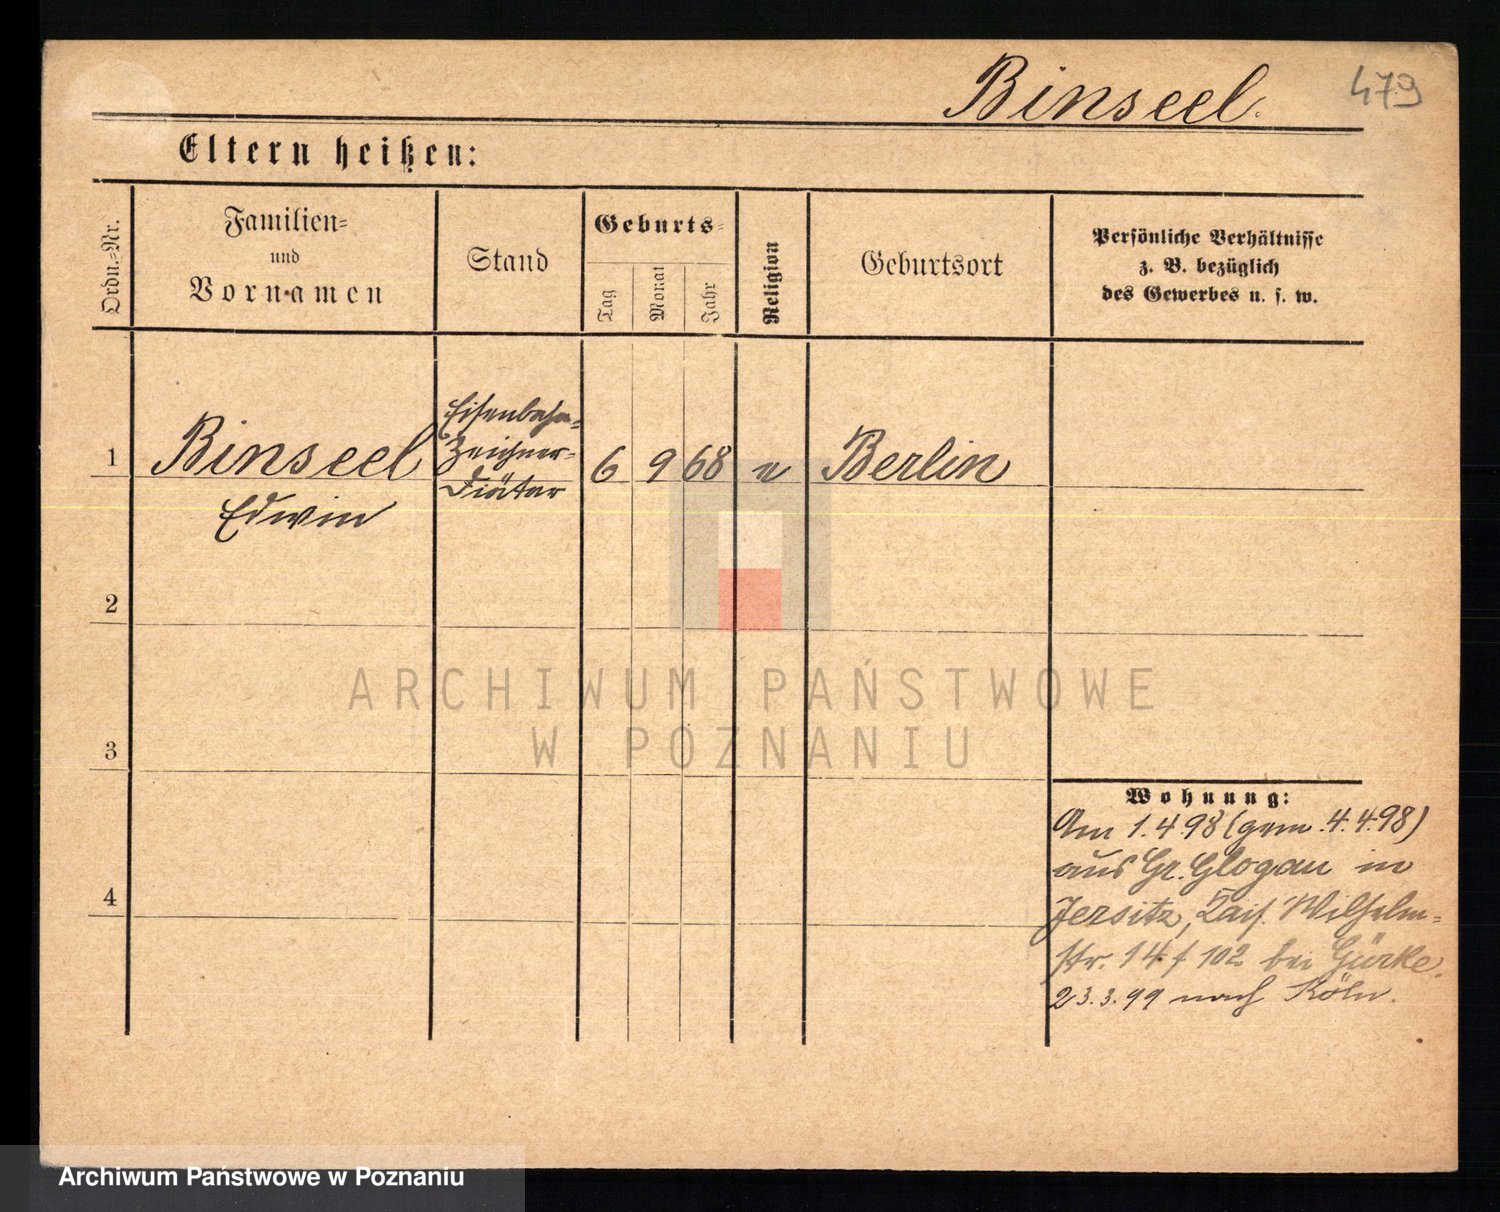 Binseel.
479
Eltern heißen:
Ordn.-Nr.
Familien-
und
Vornamen
Stand
Geburts-
Tag
Monat
Jahr
Religion
Geburtsort
Persönliche Verhältnisse
z. B. bezüglich
des Gewerbes u. s. w.
1
Binseel
Edwin
Eisenbahn-
Zeichner-
Diätar
6 9 68
Berlin
2
3
4
Wohnung:
Am 1.4.98 (gem. 4.4.98)
aus Gr. Glogau in
Jersitz, Kais. Wilhelm-
str. 14 f 102 bei Gürke.
23.3.99 nach Köln.
ARCHIWUM PAŃSTWOWE
W POZNANIU
Archiwum Państwowe w Poznaniu